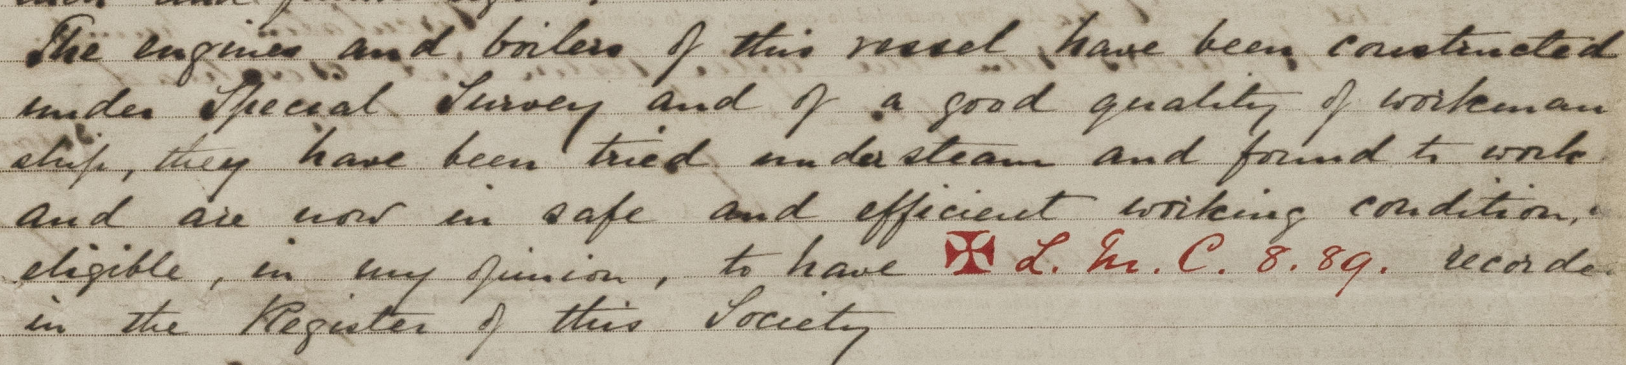 The engines and boilers of this vessel have been constructed
under Special Survey and of a good quality of workman
ship, they have been tried under steam and found to work
and are now in safe and efficient working condition,
eligible, in my opinion, to have ✠ L. M. C. 8. 89. recorde
in the Register of this Society